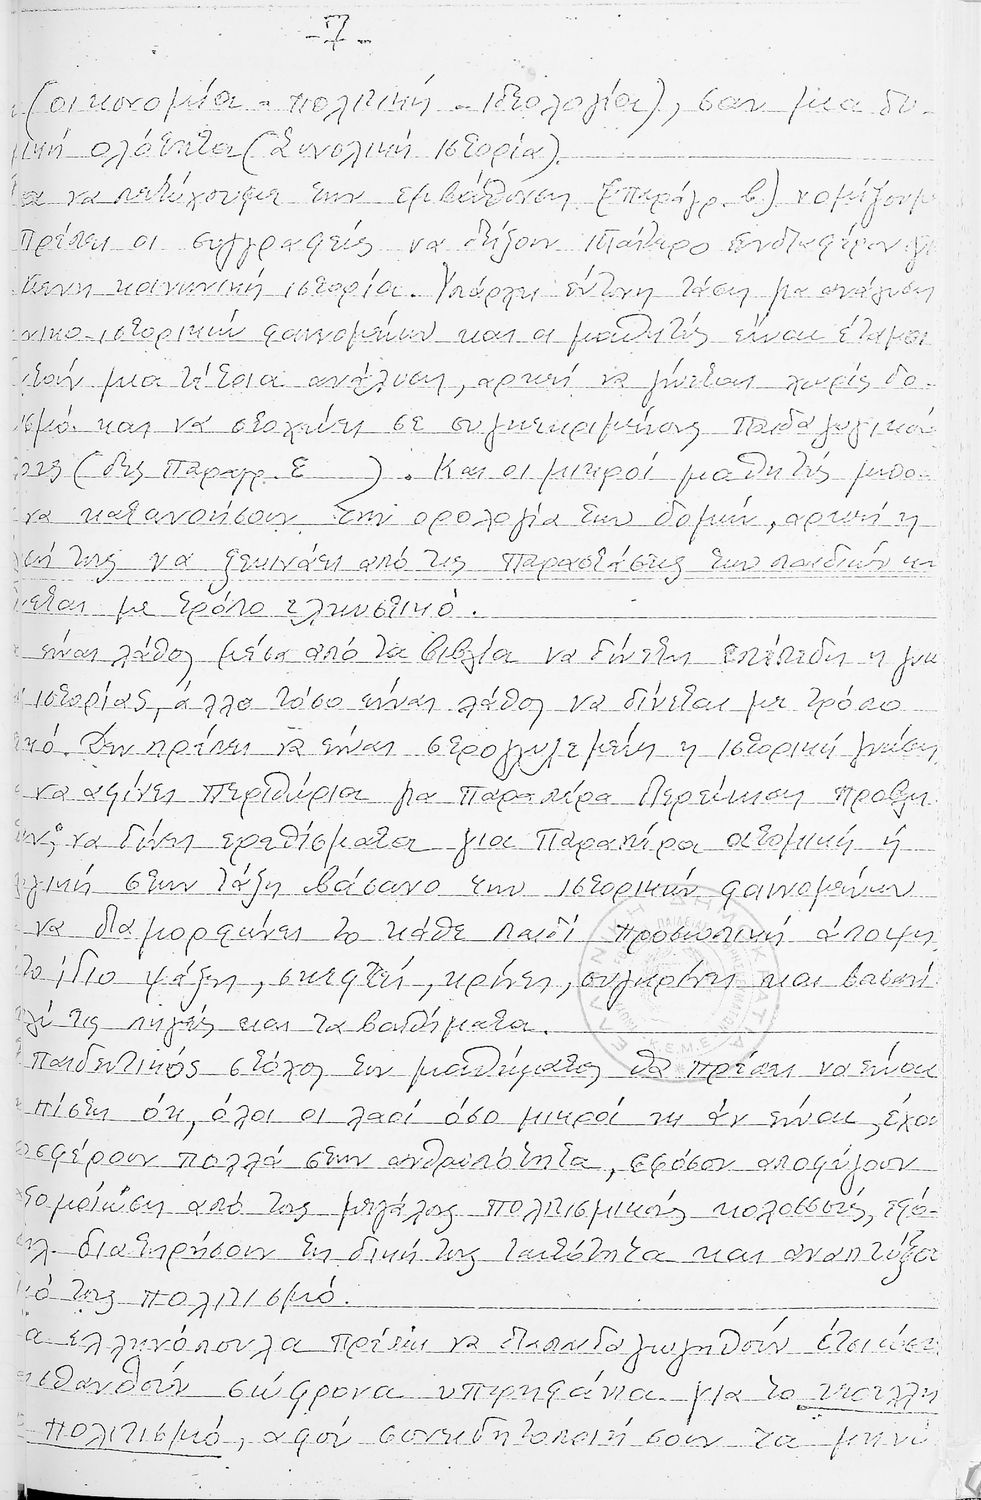 -7-
(οικονομία - πολιτική - ιδεολογία), σαν μια δυ-
μική ολότητα (Συνολική ιστορία).
να πετύχουμε την εμβάθυνση (παράγρ. β) νομίζουμε
πρέπει οι συγγραφείς να δείξουν ιδιαίτερο ενδιαφέρον
κοινωνική ιστορία. Υπάρχει έντονη τάση για ανάλυση
νικο-ιστορικών φαινομένων και οι μαθητές είναι έτοιμοι
μια τέτοια ανάλυση, αρκεί να γίνεται χωρίς δο-
σμό και να στοχεύει σε συγκεκριμένους παιδαγωγικού
(δες παραγρ. Ε ). Και οι μικροί μαθητές μπο-
να κατανοήσουν την ορολογία των δομών, αρκεί η
τους να ξεκινάει από τις παραστάσεις των παιδιών κι
νεται με τρόπο ελκυστικό.
είναι λάθος μέσα από τα βιβλία να δίνεται επίπεδη η γνω
ιστορίας, άλλο τόσο είναι λάθος να δίνεται με τρόπο
κό. Δεν πρέπει να είναι στρογγυλεμένη η ιστορική γνώση,
να αφίνει περιθώρια για παραπέρα διερεύνηση προβλη
των, να δίνει ερεθίσματα για παραπέρα ατομική ή
στην τάξη βάσανο των ιστορικών φαινομένων
να διαμορφώνει το κάθε παιδί προσωπική άποψη
το ίδιο ψάξει, σκεφτεί, κρίνει, συγκρίνει και βασανί
τις πηγές και τα βοηθήματα.
παιδευτικός στόχος του μαθήματος θα πρέπει να είναι
πίστη ότι, όλοι οι λαοί όσο μικροί κι αν είναι, έχου
σφέρουν πολλά στην ανθρωπότητα, εφόσον αποφύγουν
ξομοίωση από τους μεγάλους πολιτισμικούς κολοσσούς, εφό-
διατηρήσουν τη δική τους ταυτότητα και αναπτύξου
κό τους πολιτισμό.
α ελληνόπουλα πρέπει να διαπαιδαγωγηθούν έτσι ώστε
αισθανθούν σώφρονα υπερηφάνεια για το νεοελλη
πολιτισμό, αφού συνειδητοποιήσουν τα μηνύ
ΕΛΛΗΝΙΚΗ ΔΗΜΟΚΡΑΤΙΑ
Κ.Ε.Μ.Ε.